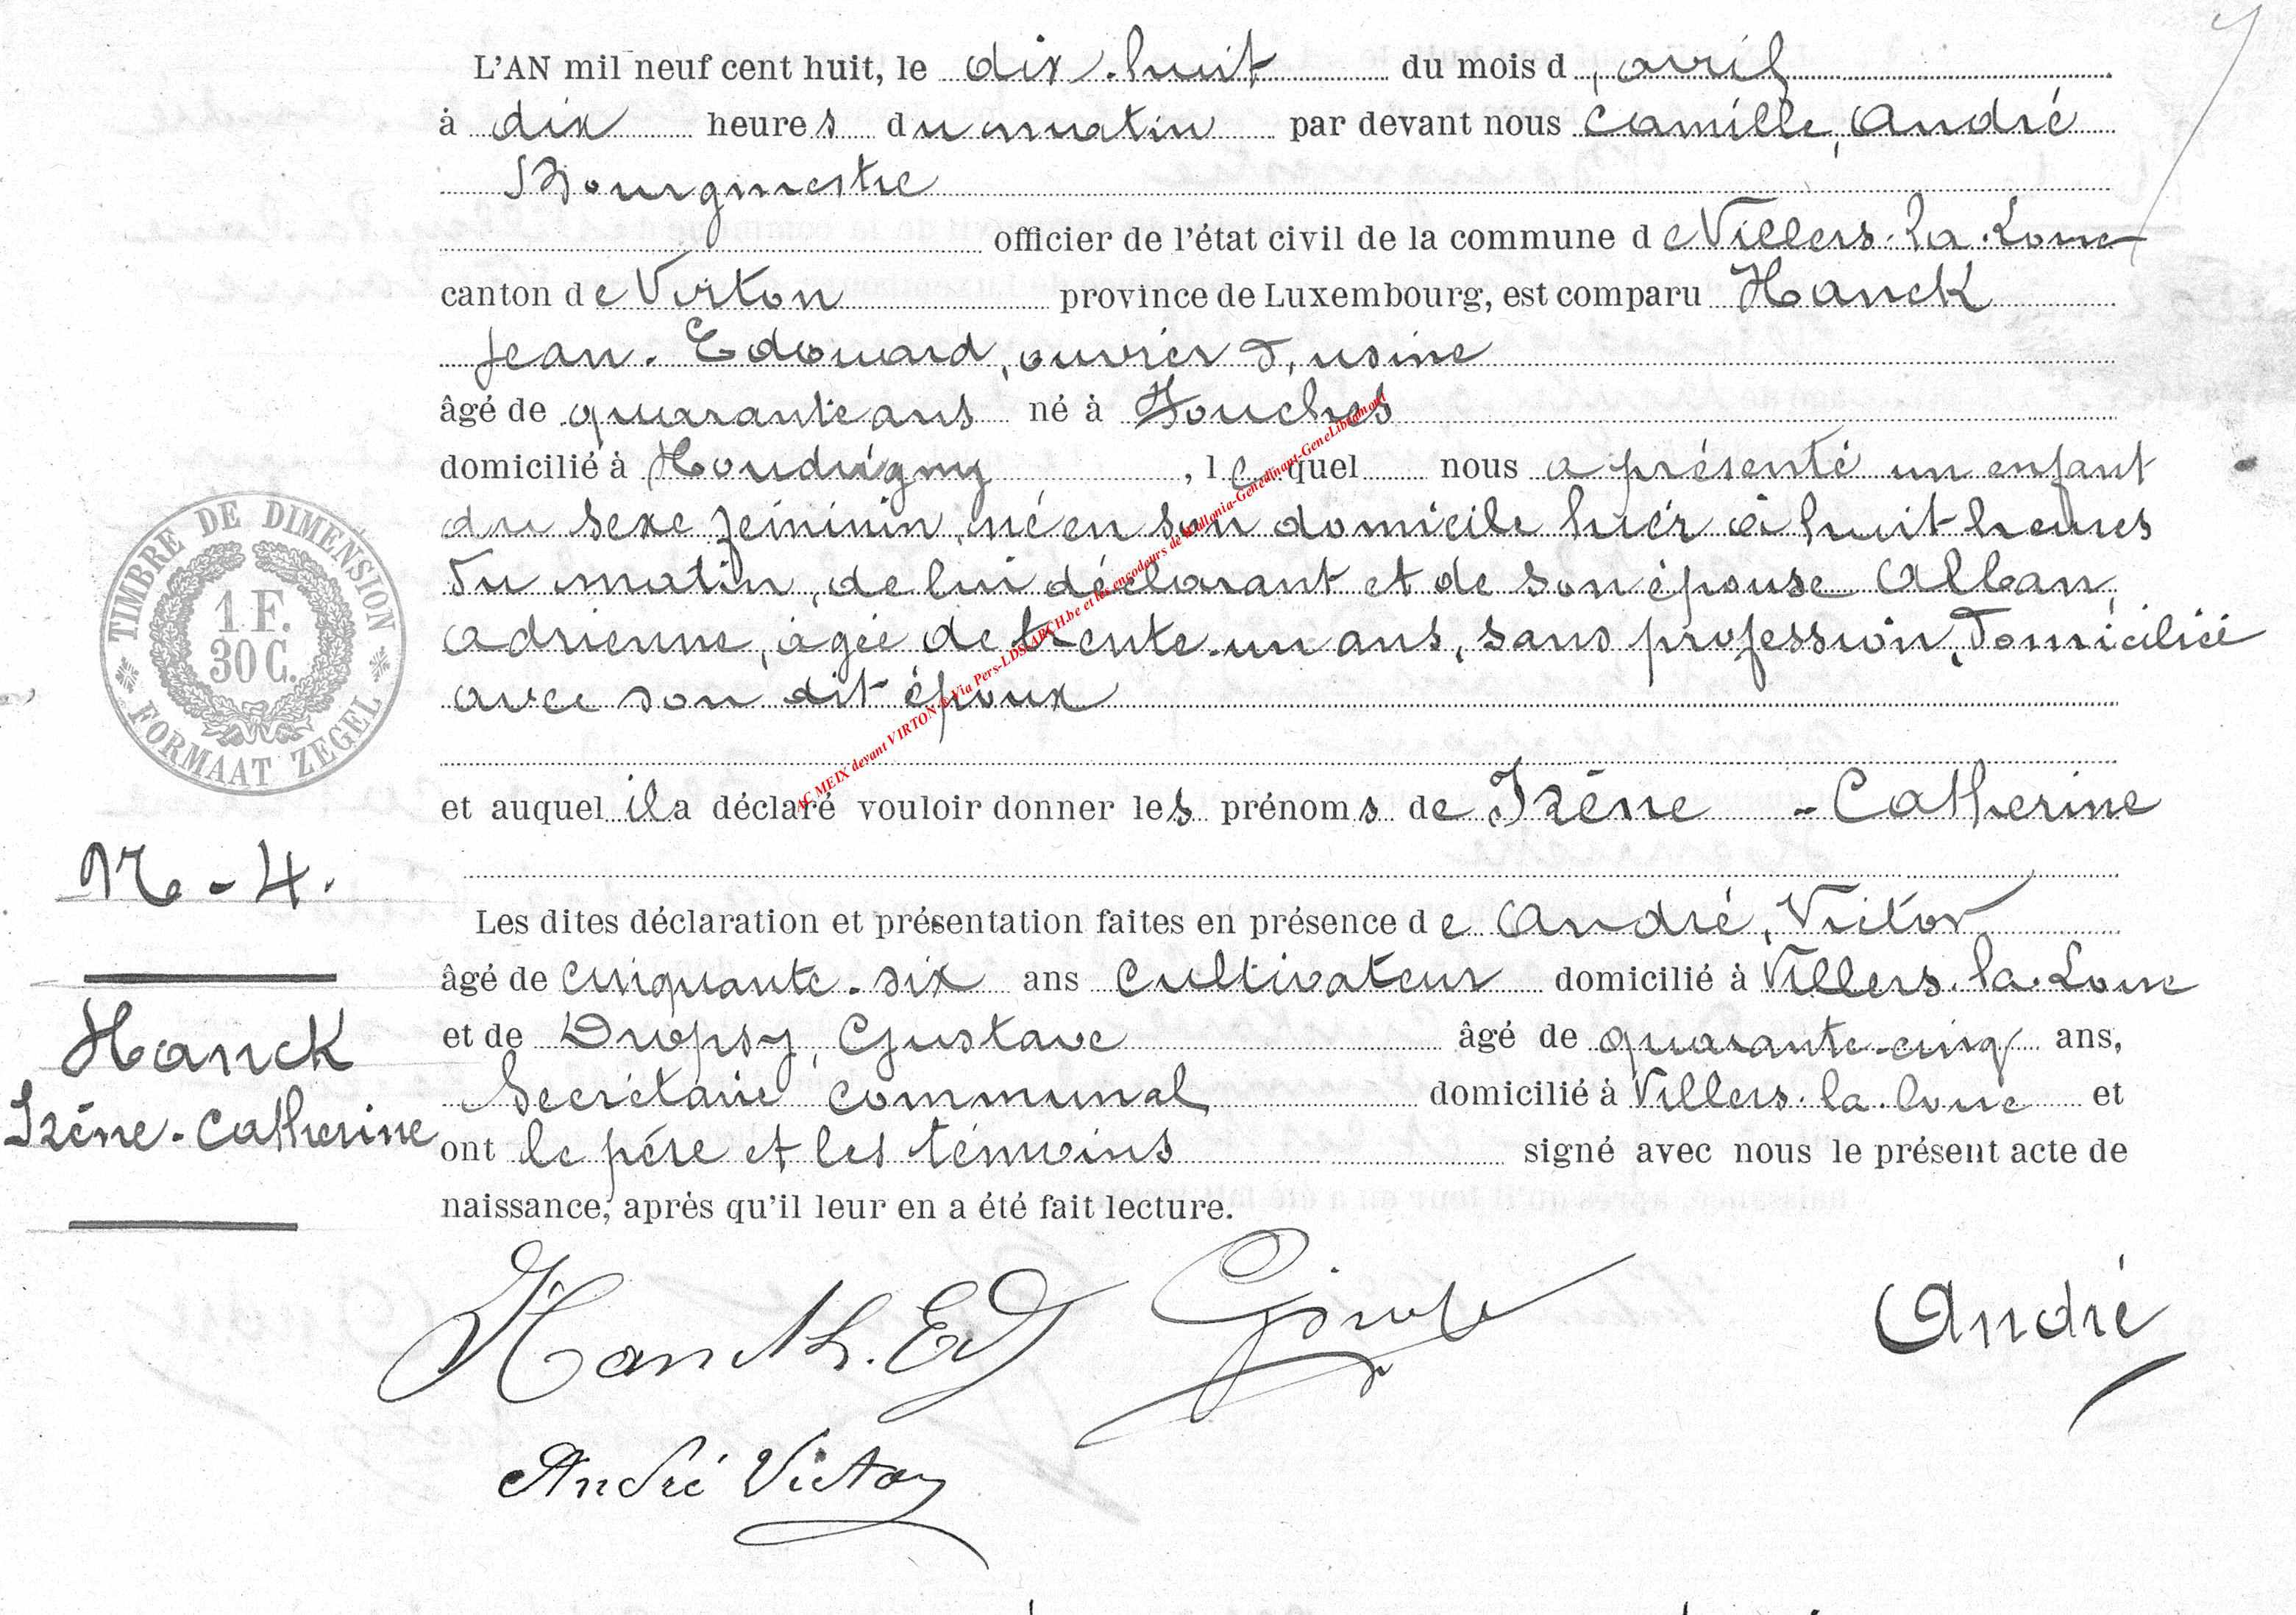 L'AN mil neuf cent huit, le dix-huit du mois d'avril
à dix heures du matin par devant nous Camille, André
Bourgmestre
officier de l'état civil de la commune de Villers-la-Loue
canton de Virton province de Luxembourg, est comparu Hanck
Jean-Edouard, ouvrier d'usine
âgé de quarante ans né à Houches
domicilié à Houdrigny, lequel nous a présenté un enfant
du sexe feminin, né en son domicile hier à huit heures
du matin, de lui déclarant et de son épouse Alban
Adrienne, âgée de trente-un ans, sans profession, domiciliée
avec son dit époux
TIMBRE DE DIMENSION
1 F.
30 C.
FORMAAT ZEGEL
AC MEIX devant VIRTON & Via Pers-LDS-ARCH.be et les encodeurs de Wallonia-Genedinant-GeneLibramont
et auquel il a déclaré vouloir donner les prénoms de Irène - Catherine
N-4.
Les dites déclaration et présentation faites en présence de André, Victor
âgé de cinquante-six ans cultivateur domicilié à Villers-la-Loue
Hanck
et de Dropsy, Gustave âgé de quarante-cinq ans,
Secrétaire communal domicilié à Villers-la-loue et
Irène-Catherine
ont le père et les témoins signé avec nous le présent acte de
naissance, après qu'il leur en a été fait lecture.
Hanck. Ed
André
André Victor